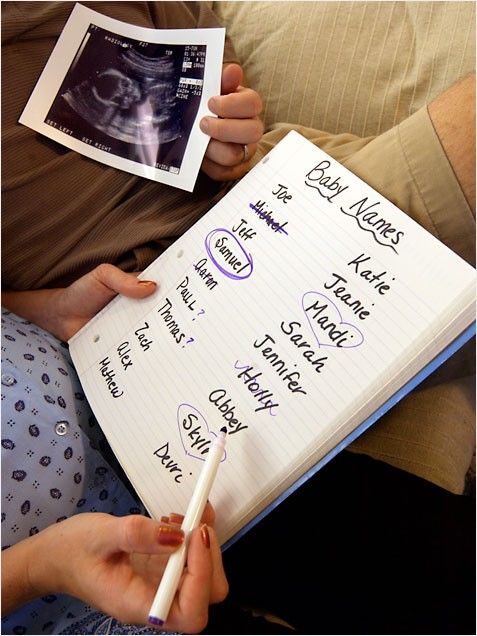 RADIOLOGY
SET LEFT SET RIGHT
Baby Names
Joe
Michael
Jeff
Samuel
Aaron
PAUL?
Thomas?
Zach
Alex
Mathew
Katie
Jeanie
Mandi
Sarah
Jennifer
Holly
Abbey
Devri